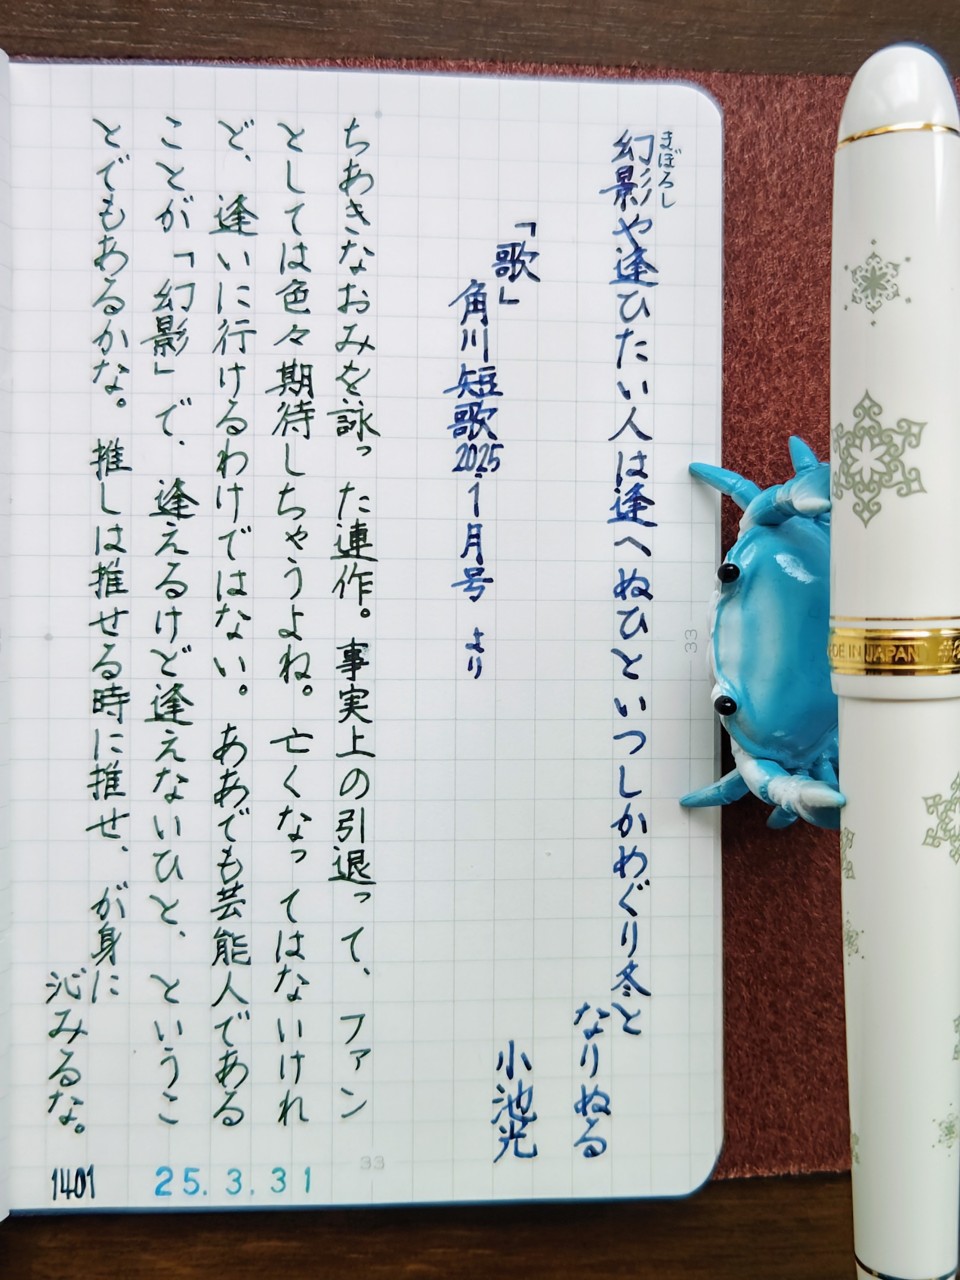 幻影や逢ひたい人は逢へぬひといつしかめぐり冬と
まぼろし
なりぬる
「歌」
小池光
角川短歌2025.1月号 より
ちあきなおみを詠った連作。事実上の引退って、ファン
としては色々期待しちゃうよね。亡くなってはないけれ
ど、逢いに行けるわけではない。ああでも芸能人である
ことが「幻影」で、逢えるけど逢えないひと、というこ
とでもあるかな。推しは推せる時に推せ、が身に
沁みるな。
1401
25.3.31
33
33
MADE IN JAPAN